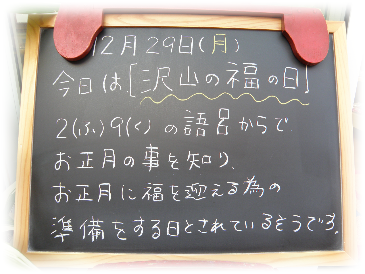 12月29日(月)
今日は[沢山の福の日]
2(ふ)9(く)の語呂からで、
お正月の事を知り、
お正月に福を迎える為の
準備をする日とされているそうです。